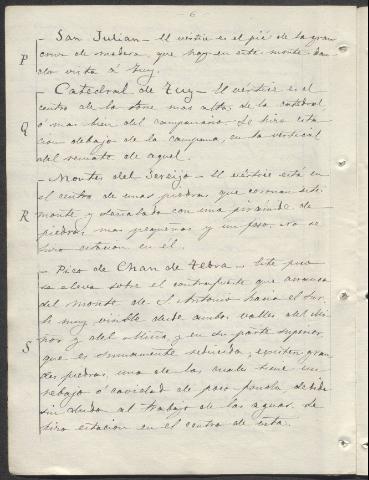 - 6 -
- San Julian - El vértice es el pié de la gran
cruz de madera, que hay en este monte dan
P
do vista á Tuy.
Catedral de Tuy - El vértice es el
centro de la torre mas alta, de la catedral,
ó mas bien del campanario. Se hizo esta
Q
cion debajo de la campana, en la vertical
del remate de aquel.
- Montes del Cereijo - El vértice está en
el centro de unas piedras que coronan este
R
monte y señalado con una pirámide de
piedras mas pequeñas y un poso. No se
hizo estacion en él.
- Pico de Chan de Tebra - Este pico
se eleva sobre el contrafuerte que arranca
del monte de S. Antonio hacia el Sur.
Es muy visible desde ambos valles del Mi
ñor y del Miño, y en su parte superior
S
que es sumamente reducida, existen gran
des piedras, una de las cuales tiene un
rebajo ó cavidad de poco fondo debida
sin duda al trabajo de las aguas. Se
hizo estacion en el centro de esta.